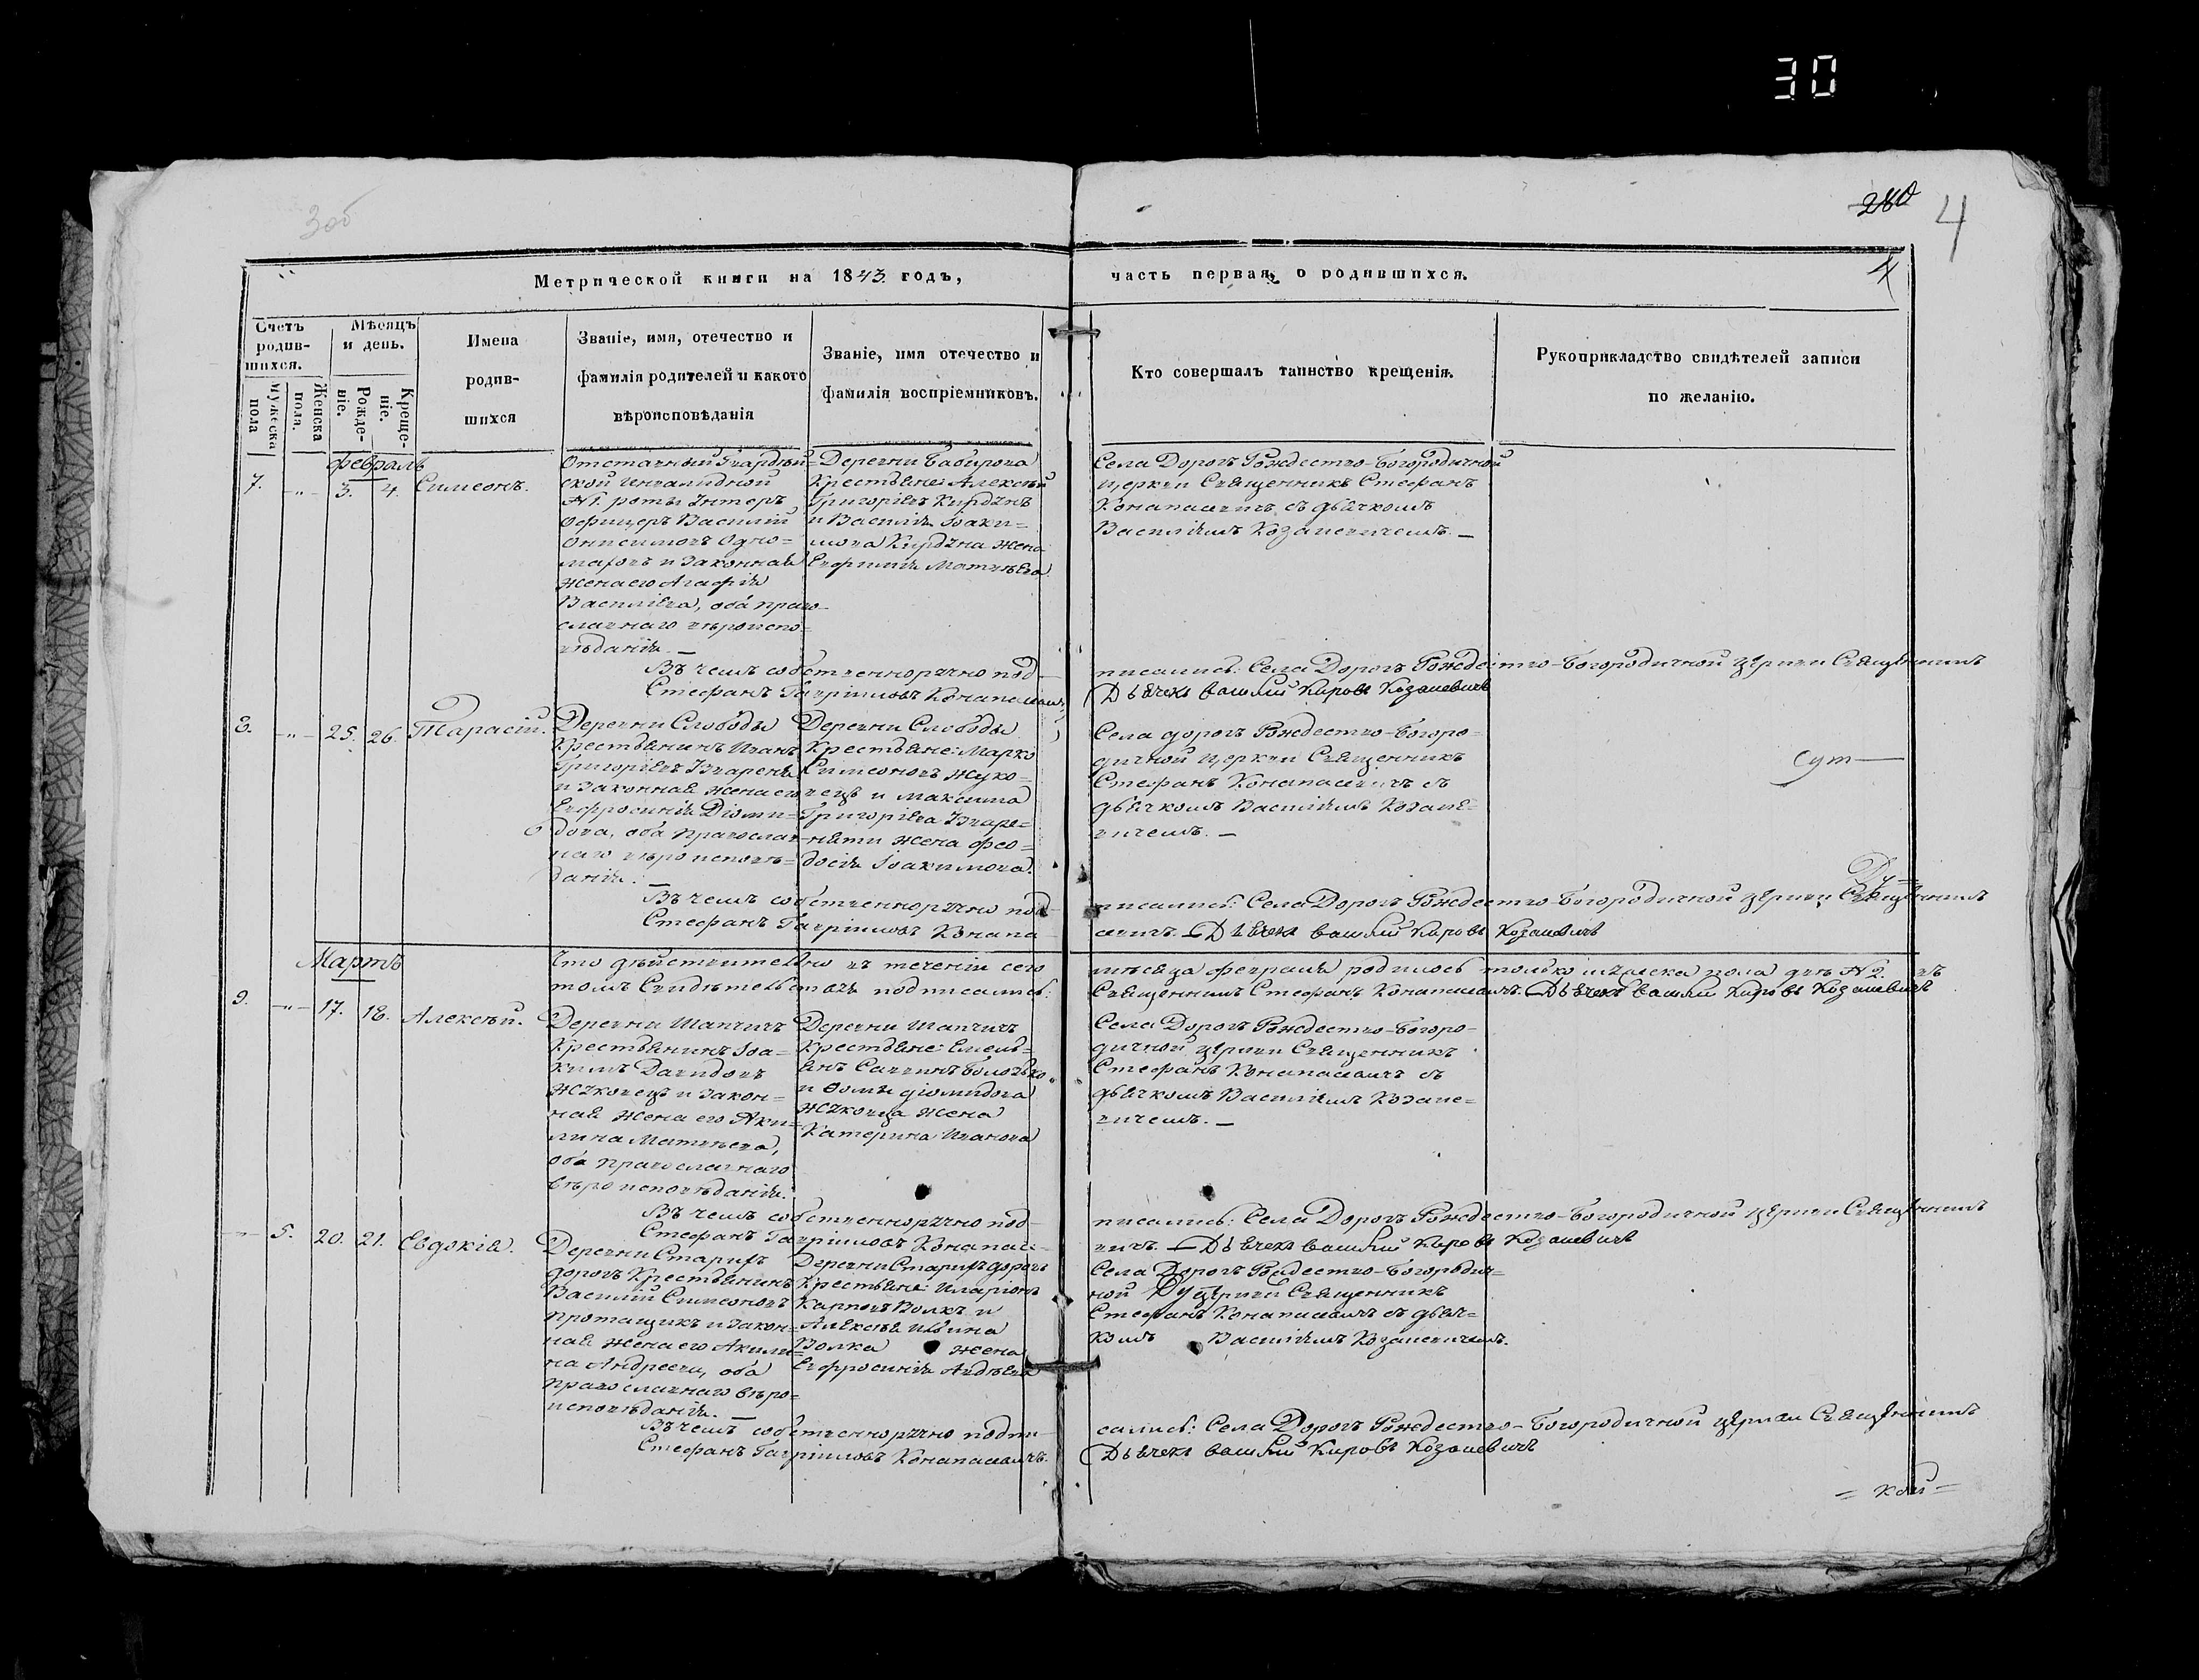 30
280
4
3об
Метрической книги на 1843 годъ,
часть первая, о родившихся.
4
Счетъ родив-шихся.
Мужеска пола
Женска пола.
Мѣсяцъ и день.
Рожде-ніе.
Креще-ніе.
Имена
родив-
шихся
Званіе, имя, отечество и
фамилія родителей и какого
вѣроисповѣданія
Званіе, имя отечество и
фамилія воспріемниковъ.
Кто совершалъ таинство крещенія.
Рукоприкладство свидѣтелей записи
по желанію.
февраль
7. -„- 3. 4. Симеонъ.
Отставный Гвардѣй-
ской инвалидной
№1. роты Унтеръ
Офицеръ Василій
Онисимовъ Одно-
и законная
жена его Агафія
Василіева, оба право-
славнаго вѣроиспо-
вѣданія. —
Деревни
Крестьяне: Алексѣй
Григоріевъ
и Василія Іоаки-
мова жена
Евфимія Матѳѣева
Села Дорогъ Рождество-Богородичной
церкви Священникъ Стефанъ
съ дьячкомъ
Василіемъ Козаневичемъ. —
Въ чемъ собственноручно под-
писались: Села Дорогъ Рождество-Богородичной церкви Священникъ
Стефанъ Гавріиловъ
Дьячекъ Василий Кировъ Козаневичъ
8. -„- 25. 26. Тарасій.
Деревни Слободы
Крестьянинъ Иванъ
Григоріевъ
и законная жена его
Евфросинія Діоми-
дова, оба православ-
наго вѣроисповѣ-
данія. —
Деревни Слободы
Крестьяне: Марко
Симеоновъ Жуко-
вецъ и Максима
Григоріева
жена Фео-
досія Іоакимова.
Села Дорогъ Рождество-Богоро-
дичной церкви Священникъ
Стефанъ съ
дьячкомъ Василіемъ Козане-
вичемъ. —
сут—
Ду=
Въ чемъ собственноручно под-
писались: Села Дорогъ Рождество-Богородичной церкви Священникъ
Стефанъ Гавріиловъ
Дьячекъ Василий Кировъ Козаневичъ
Мартъ
Что дѣйствительно въ теченіи сего
мѣсяца февраля родилось только мужеска пола два № 2. въ
томъ Свидѣтельствомъ подписались:
Священникъ Стефанъ Дьячекъ Василий Кировъ Козаневичъ
9. -„- 17. 18. Алексѣй.
Деревни Шапчицъ
Крестьянинъ Іоа-
кимъ Давидовъ
Жуковецъ и закон-
ная жена его Аки-
лина Матѳѣева,
оба православнаго
вѣроисповѣданія.
Деревни Шапчицъ
Крестьяне: Емель-
янъ Саввинъ
и Ѳомы Діомидова
Жуковца жена
Катерина Иванова
Села Дорогъ Рождество-Богоро-
дичной церкви Священникъ
Стефанъ съ
дьячкомъ Василіемъ Козане-
вичемъ. —
Въ чемъ собственноручно под-
писались: Села Дорогъ Рождество-Богородичной церкви Священникъ
Стефанъ Гавріиловъ
Дьячекъ Василий Кировъ Козаневичъ
-„- 5. 20. 21. Евдокія.
Деревни Старихъ
дорогъ Крестьянинъ
Василій Симеоновъ
и закон-
ная жена его Акили-
на Андреева, оба
православнаго вѣро-
исповѣданія. —
Деревни Старихъ дорогъ
Крестьяне: Иларіонъ
Карповъ Волкъ и
Алексѣя Ильина
Волка жена
Евфросинія
Села Дорогъ Рождество-Богородич-
ной церкви Священникъ
Стефанъ съ дьяч-
комъ Василіемъ Козаневичемъ.
Въ чемъ собственноручно подпи-
сались: Села Дорогъ Рождество-Богородичной церкви Священникъ
Стефанъ Гавріиловъ
Дьячекъ Василий Кировъ Козаневичъ